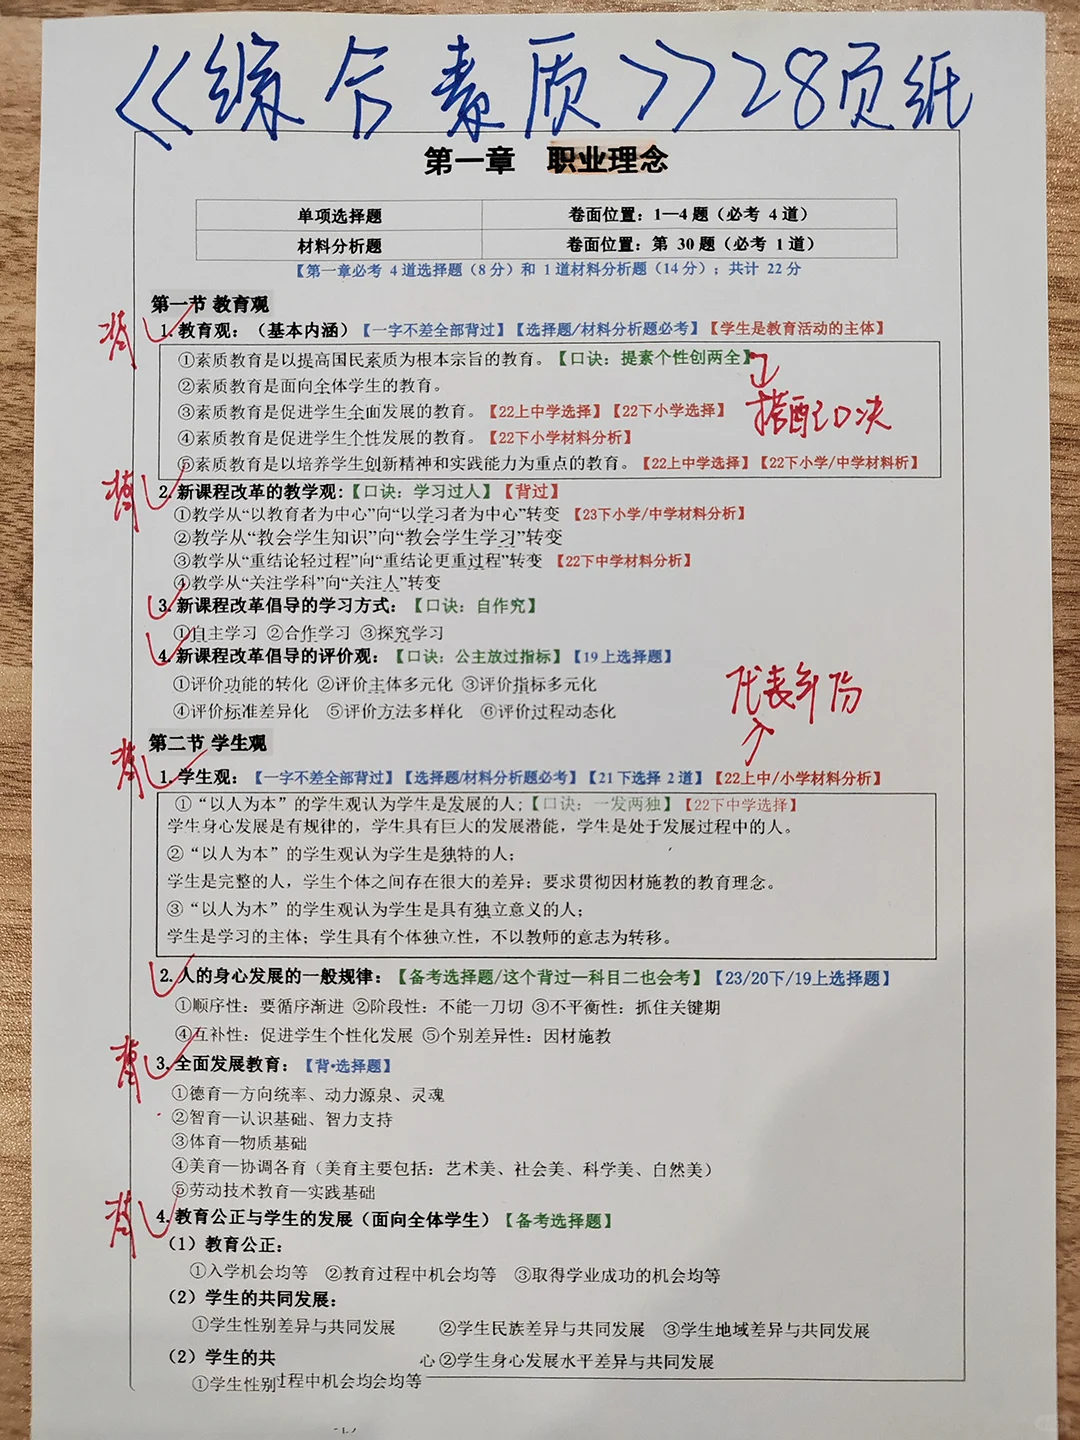 《综合素质》28页纸
第一章 职业理念
单项选择题 卷面位置：1—4题（必考 4道）
材料分析题 卷面位置：第 30题（必考 1道）
【第一章必考 4道选择题（8分）和 1道材料分析题（14分）；共计 22分
第一节 教育观
背 1. 教育观：（基本内涵）【一字不差全部背过】【选择题/材料分析题必考】【学生是教育活动的主体】
①素质教育是以提高国民素质为根本宗旨的教育。【口诀：提素个性创两全】
②素质教育是面向全体学生的教育。
③素质教育是促进学生全面发展的教育。【22上中学选择】【22下小学选择】
搭配口诀
④素质教育是促进学生个性发展的教育。【22下小学材料分析】
⑤素质教育是以培养学生创新精神和实践能力为重点的教育。【22上中学选择】【22下小学/中学材料析】
背 2. 新课程改革的教学观：【口诀：学习过人】【背过】
①教学从“以教育者为中心”向“以学习者为中心”转变 【23下小学/中学材料分析】
②教学从“教会学生知识”向“教会学生学习”转变
③教学从“重结论轻过程”向“重结论更重过程”转变 【22下中学材料分析】
④教学从“关注学科”向“关注人”转变
3. 新课程改革倡导的学习方式：【口诀：自作究】
①自主学习 ②合作学习 ③探究学习
4. 新课程改革倡导的评价观：【口诀：公主放过指标】【19上选择题】
①评价功能的转化 ②评价主体多元化 ③评价指标多元化
代表年份
④评价标准差异化 ⑤评价方法多样化 ⑥评价过程动态化
第二节 学生观
背 1. 学生观：【一字不差全部背过】【选择题/材料分析题必考】【21下选择 2道】【22上中/小学材料分析】
①“以人为本”的学生观认为学生是发展的人；【口诀：一发两独】【22下中学选择】
学生身心发展是有规律的，学生具有巨大的发展潜能，学生是处于发展过程中的人。
②“以人为本”的学生观认为学生是独特的人；
学生是完整的人，学生个体之间存在很大的差异；要求贯彻因材施教的教育理念。
③“以人为木”的学生观认为学生是具有独立意义的人；
学生是学习的主体；学生具有个体独立性，不以教师的意志为转移。
2. 人的身心发展的一般规律：【备考选择题/这个背过—科目二也会考】【23/20下/19上选择题】
①顺序性：要循序渐进 ②阶段性：不能一刀切 ③不平衡性：抓住关键期
④互补性：促进学生个性化发展 ⑤个别差异性：因材施教
背 3. 全面发展教育：【背·选择题】
①德育—方向统率、动力源泉、灵魂
②智育—认识基础、智力支持
③体育—物质基础
④美育—协调各育（美育主要包括：艺术美、社会美、科学美、自然美）
⑤劳动技术教育—实践基础
背 4. 教育公正与学生的发展（面向全体学生）【备考选择题】
（1）教育公正：
①入学机会均等 ②教育过程中机会均等 ③取得学业成功的机会均等
（2）学生的共同发展：
①学生性别差异与共同发展 ②学生民族差异与共同发展 ③学生地域差异与共同发展
（2）学生的共 心 ②学生身心发展水平差异与共同发展
①学生性别过程中机会均会均等